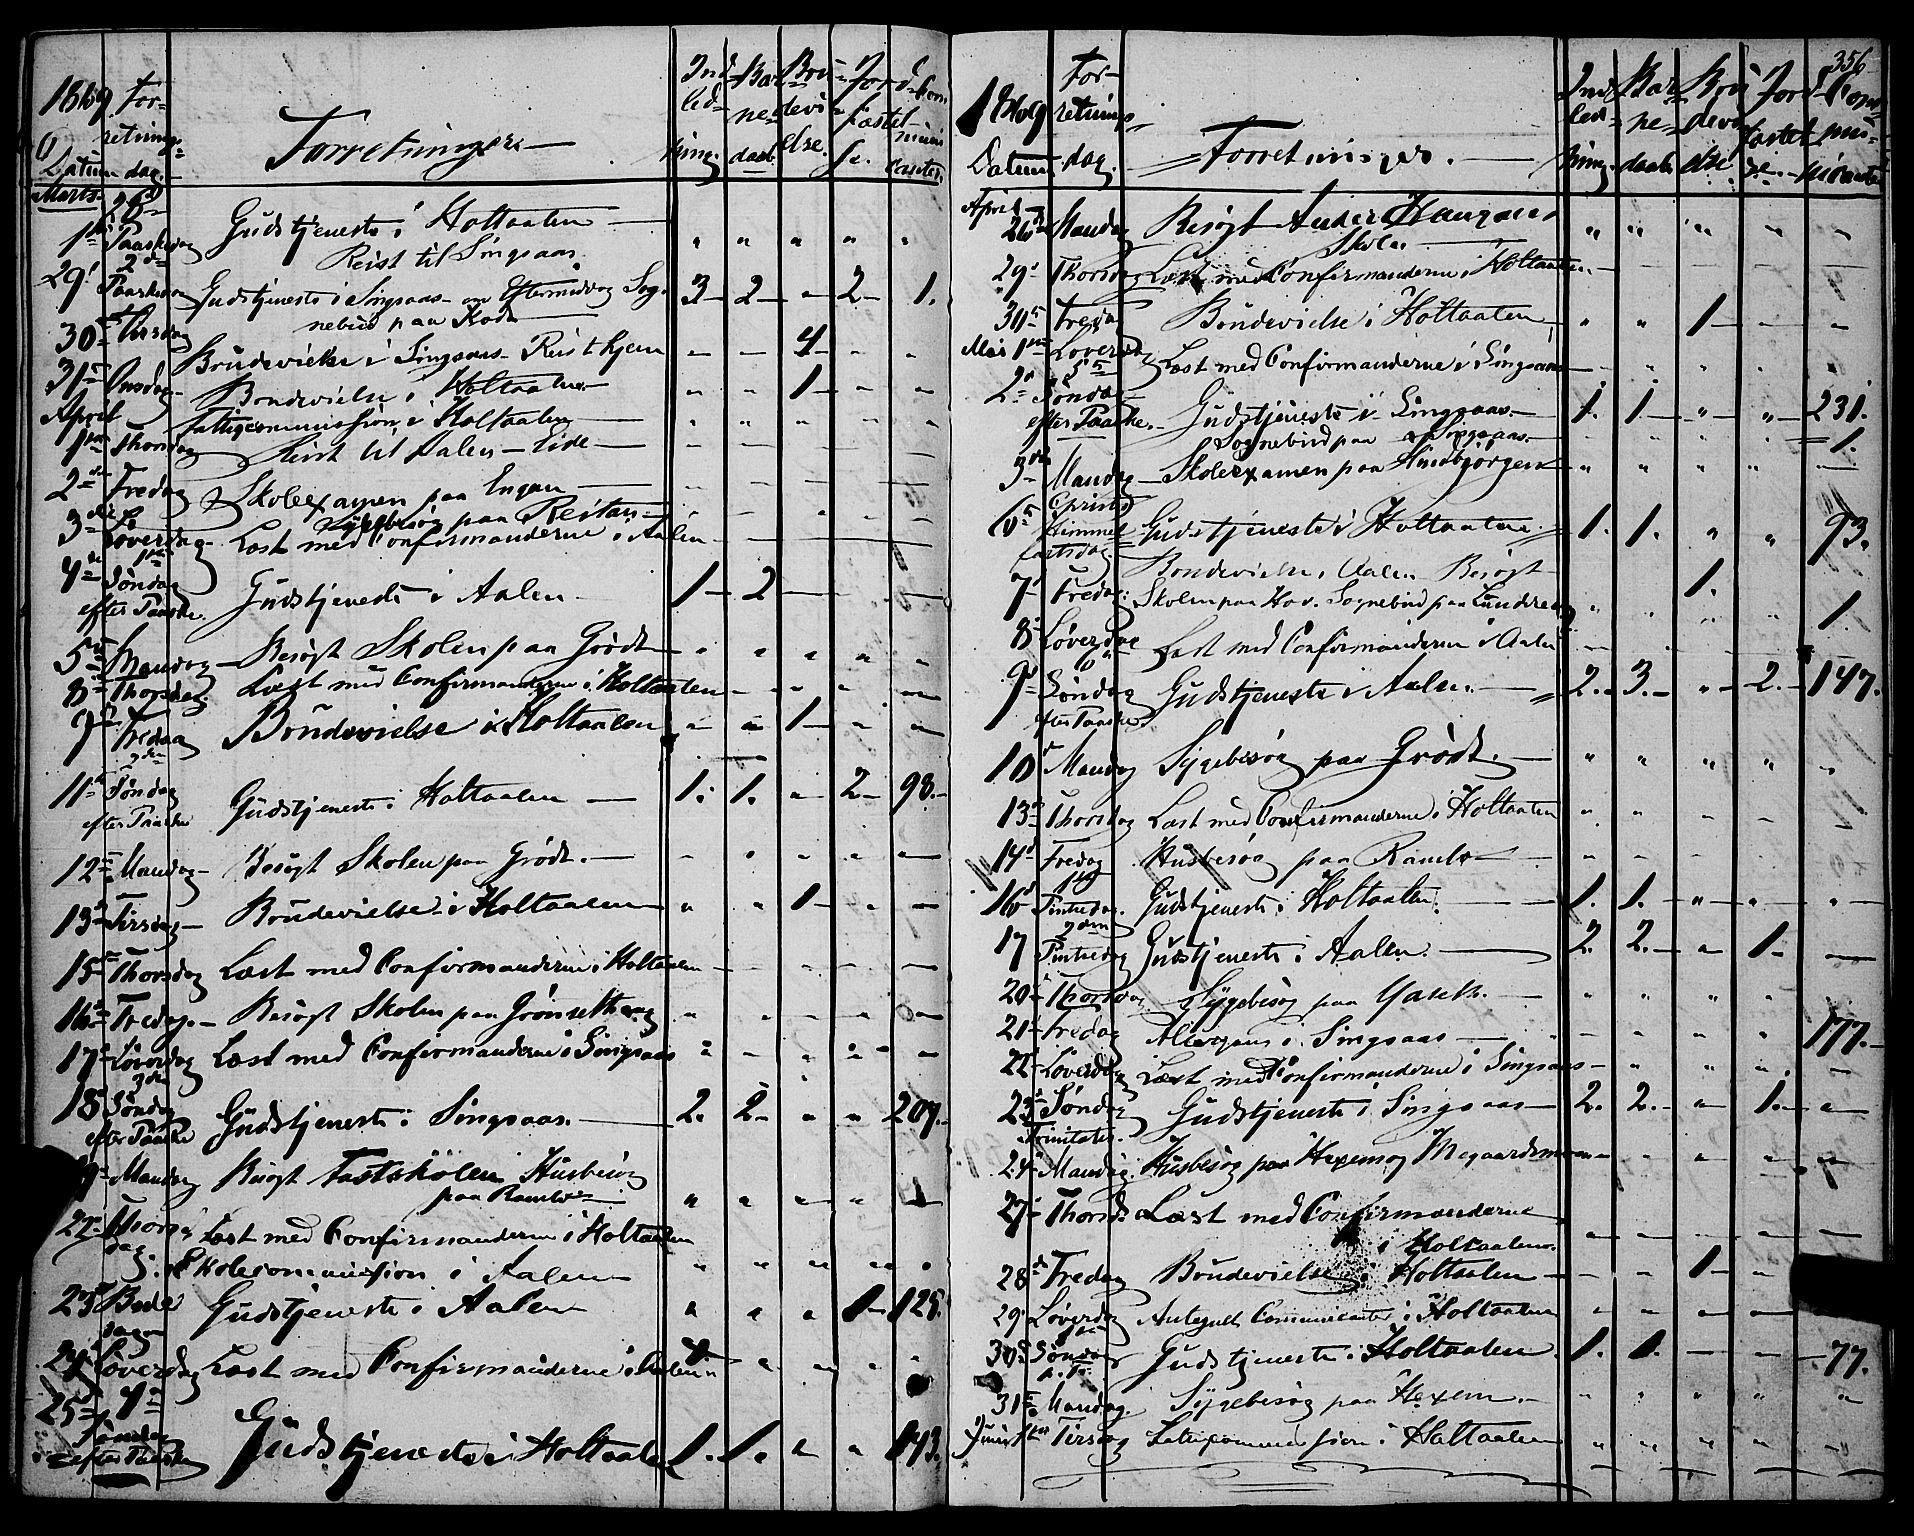 1869
Datum
For-
retnings-
dag.
Forretninger
Ind-
led-
ning.
Bar-
ne-
daab
Bru-
devi-
else.
Jord-
fæstel-
se.
Com-
muni-
canter.
Marts
28d 1ste Paaskedag Gudstjeneste i Holtaalen
Reist til Singsaas
29d 2den Paaskedag Gudstjeneste i Singsaas - om Eftermiddag Sog- 3 - 2 - " - 2 - 1.
nebud paa
30 Tirsdag Brudevielse i Singsaas - Reist hjem - - 4 - " "
31te Onsdag Brudevielse i Holtaalen " " 1 - " "
April Fattigcommission i Holtaalen
1ste Thorsdag Reist til Aalen -
2den Fredag Skoleexamen paa Engan
Sygebesøg paa Reitan
3die Løverdag Læst med Confirmanderne i Aalen
4de 1ste Søndag efter Paaske Gudstjeneste i Aalen 1 - 2 - - - -
5te Mandag Besøgt Skolen paa Grødt
8de Thorsdag Læst med Confirmanderne i Holtaalen
9de Fredag Brudevielse i Holtaalen " " 1 - " "
11te 2den Søndag efter Paaske Gudstjeneste i Holtaalen 1. 1. " 2 - 98.
12te Mandag Besøgt Skolen paa Grødt.
13de Tirsdag Brudevielse i Holtaalen " " 1 - " "
15de Thorsdag Læst med Confirmanderne i Holtaalen
16de Fredag. Besøgt Skolen paa Grønsethaug
17de Løverdag Læst med Confirmanderne i Singsaas
18de 3die Søndag efter Paaske Gudstjeneste i Singsaas. 2. 2 - " " 209.
19 Mandag Besøgt Fastskolen Husbesøg
paa Ramlo " " " " 1
22de Thorsdag. Læst med Confirmanderne i Holtaalen
Skolecommission i Aalen
23de Bededagen Gudstjeneste i Aalen " " " 1 - 125.
24de Løverdag Læst med Confirmanderne i Aalen
25de 4de Søndag efter Paaske Gudstjeneste i Holtaalen 1. 1. " " 143.
356
1869
Datum
For-
retnings-
dag.
Forretninger.
Ind-
led-
ning.
Bar-
ne-
daab
Bru-
devi-
else
Jord-
fæstel-
se.
Com-
mu-
nicanter
April
26de Mandag Besøgt Haugaas
Skole
29d Thorsdag Læst med Confirmanderne i Holtaalen.
30te Fredag Brudevielse i Holtaalen " " 1 - " "
Mai 1ste Løverdag Læst med Confirmanderne i Singsaas
2den 5te Søndag efter Paaske. Gudstjeneste i Singsaas. 1. 1. " " 231.
Sognebud paa Singsaas. 1.
3die Mandag Skoleexamen paa
6te Christi Himmelfartsdag. Gudstjeneste i Holtaalen 1. 1. " " 93.
Brudevielse i Aalen Besøgt
7de Fredag Skolen paa Hov. Sognebud paa 1. 1.
8de Løverdag Læst med Confirmanderne i Aalen
9de 6te Søndag efter Paaske Gudstjeneste i Aalen. 2. 3. " 2. 147.
10de Mandag Sygebesøg paa Grødt.
13de Thorsdag Læst med Confirmanderne i Holtaalen
14de Fredag Husbesøg paa Ramlo
16de 1ste Pintsedag. Gudstjeneste i Holtaalen. 1. 1. " " "
17 2den Pintsedag Gudstjeneste i Aalen. 2. 2. " 1. -
20de Thorsdag Sygebesøg paa
21de Fredag Altergang i Singsaas 177.
22de Løverdag Læst med Confirmanderne i Singsaas
23de Søndag Trinitatis. Gudstjeneste i Singsaas 2. 2. " 1. "
24de Mandag. Husbesøg paa Hexem og
27de Thorsd. Læst med Confirmanderne
i Holtaalen.
28de Fredag Brudevielse i Holtaalen - - 1 - "
29 Løverdag Antegnet Communicanter i Holtaalen
30te 1ste Søndag p. Tr. Gudstjeneste i Holtaalen 1. 1. - - 77.
31te Mandag. Sygebesøg paa Hexem.
Juni 1ste Tirsdag i Holtaalen